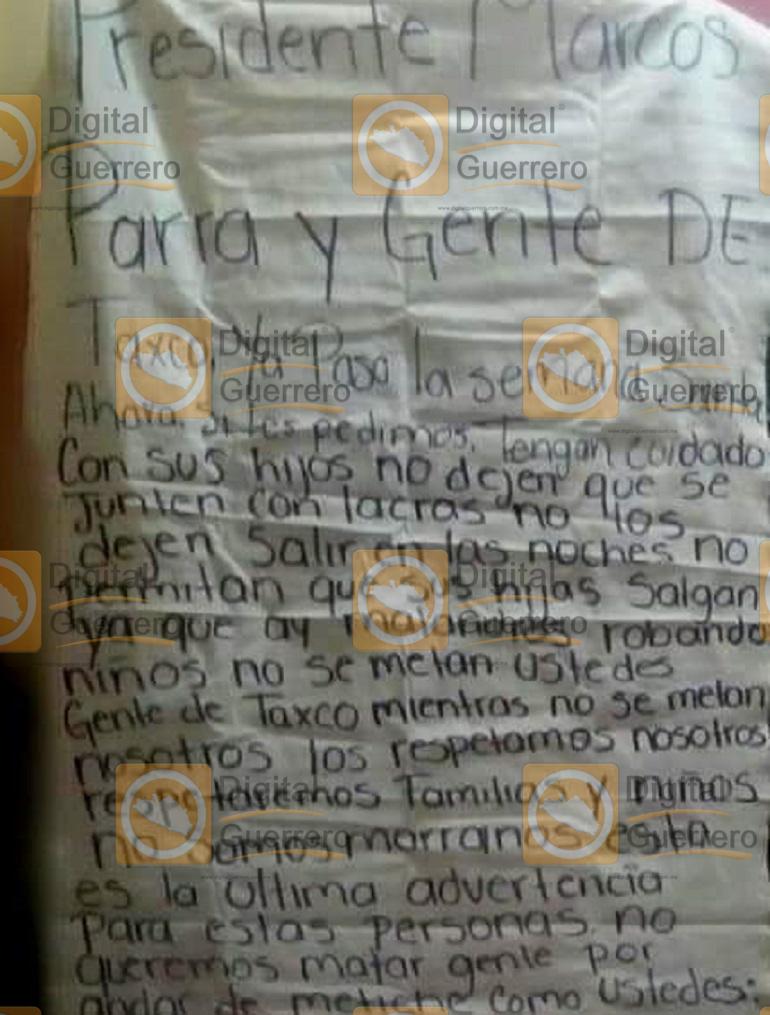 Presidente Marcos
Parra y Gente DE
Taxco. Ya Paso la semana Santa
Ahora si les pedimos. Tengan cuidado
Con sus hijos no dejen que se
Junten con lacras no los
dejen salir en las noches no
permitan que sus hijas salgan
ya que ay malandros robando
niños no se metan ustedes
Gente de Taxco mientras no se metan
nosotros los respetamos nosotros
respetaremos Familias y niños
no somos marranos esta
es la ultima advertencia
Para estas personas. no
queremos matar gente por
andar de metiche como ustedes:
Digital Guerrero